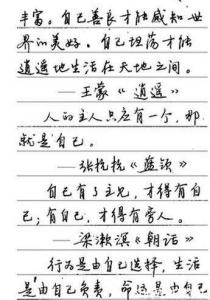 丰富。自己善良才能感知世
界的美好。自己坦荡才能
逍遥地生活在天地之间。
——王蒙《逍遥》
人的主人只应有一个,那
就是自己。
——张抗抗《蓝领》
自己有了主见,才得有自
己;有自己,才得有旁人。
——梁漱溟《朝话》
行为是由自己选择,生活
是由自己负责,命运是由自己